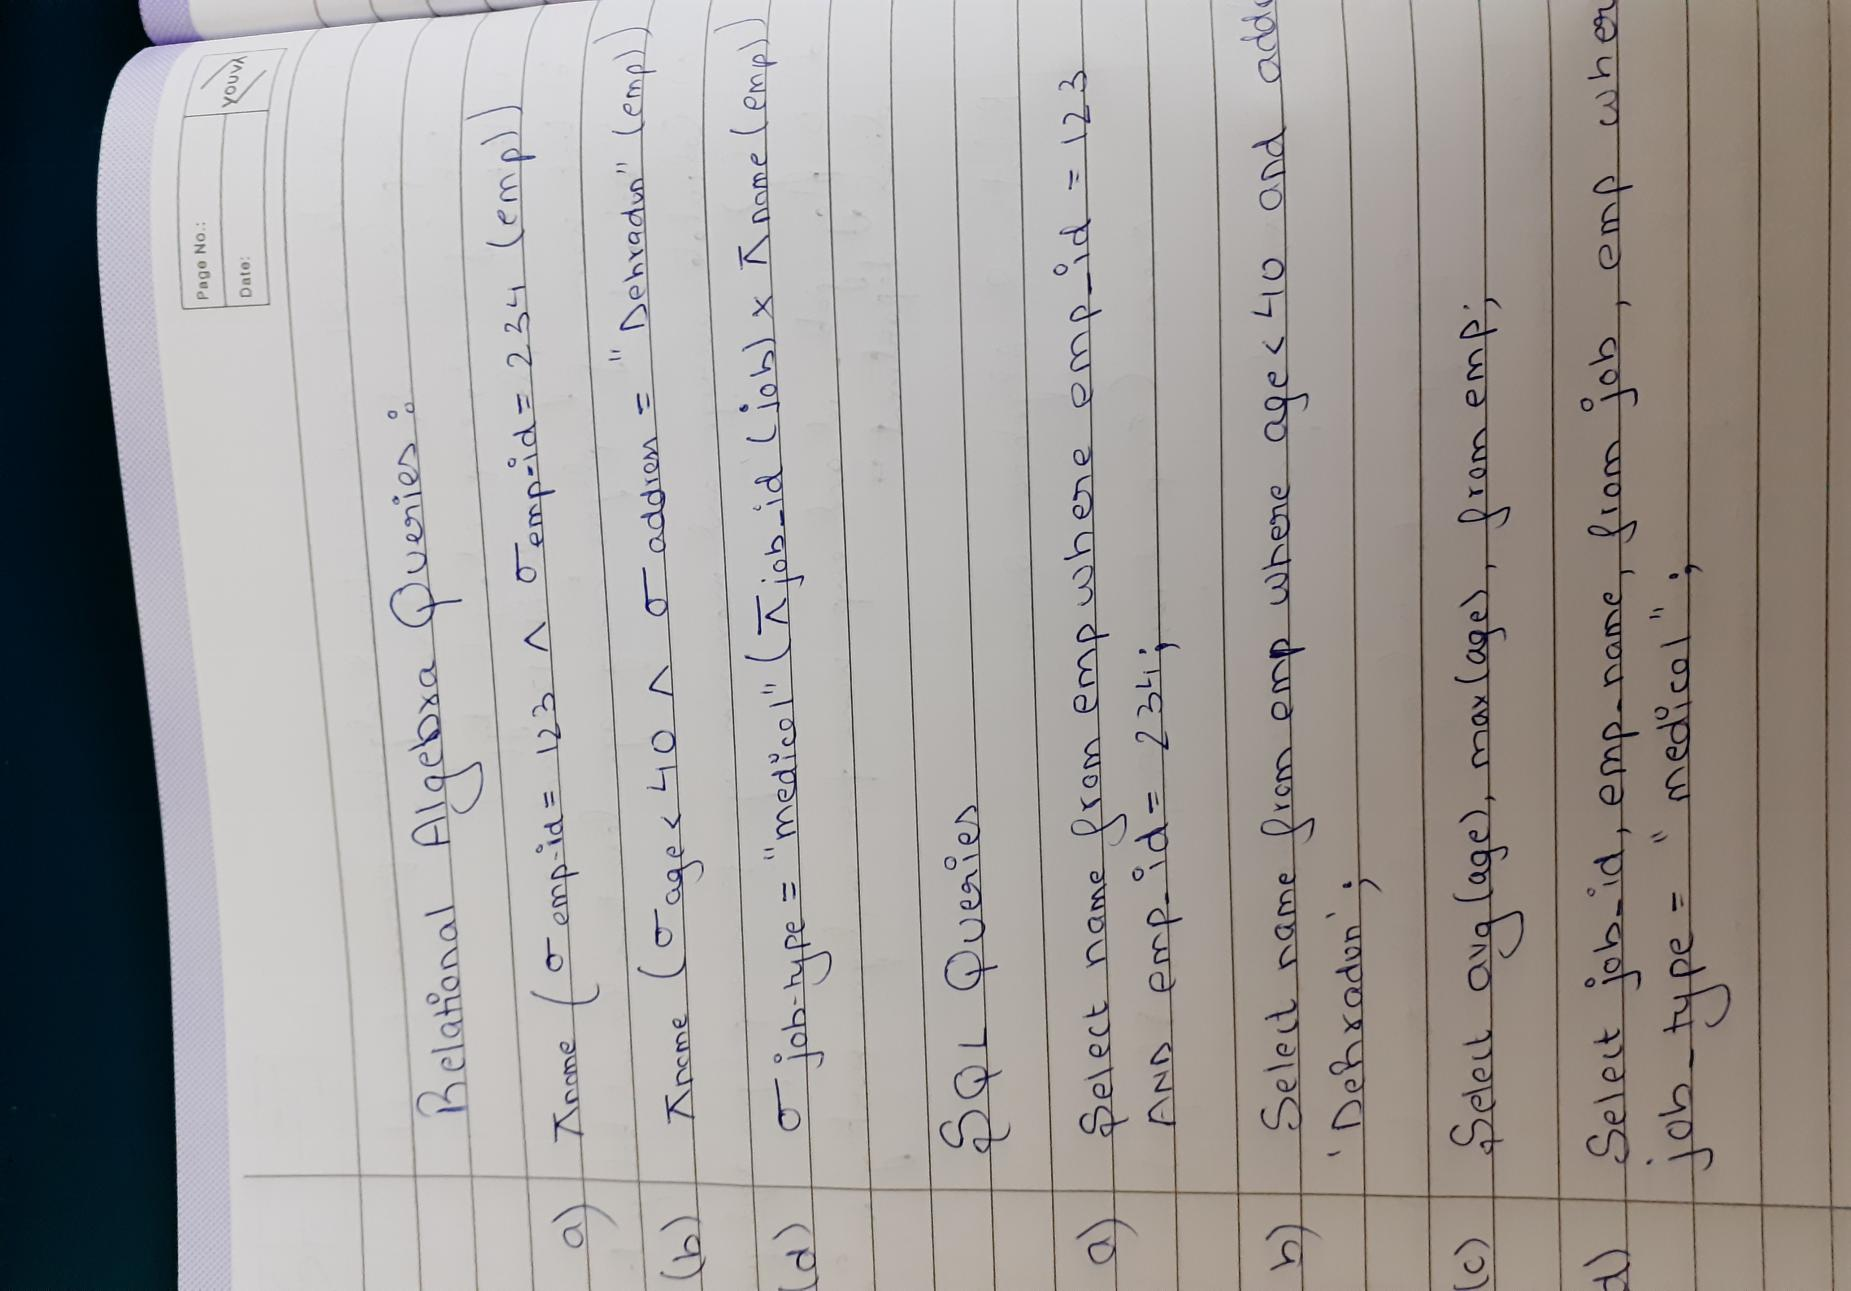 Page No.:
Date:
YOUVA
Relational Algebra Queries:
a) πname (σ emp-id = 123 ∧ σ emp-id = 234 (emp))
(b) πname (σ age < 40 ∧ σ address = "Dehradun" (emp))
(d) σ job-type = "medical" (π job-id (job) × π name (emp))
SQL Queries
a) Select name from emp where emp_id = 123
AND emp_id = 234;
b) Select name from emp where age < 40 and
'Dehradun';
(c) Select avg(age), max(age), from emp;
d) Select job-id, emp-name, from job, emp
job_type = "medical";